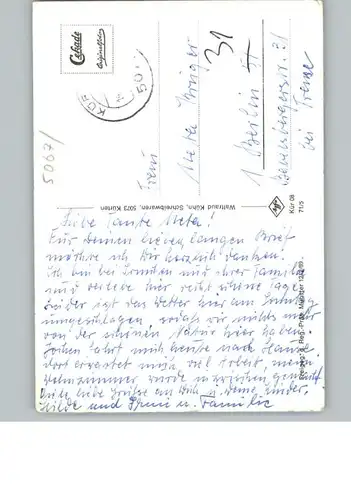 Cekade
Originalfoto
KÜR
50
31
5067/
Frau
Meta Krüger
1 Berlin 31
Babelsbergerstr. 31
bei Treme
Waltraud Kühn, Schreibwaren, 5073 Kürten
Kür 08
71/5
Liebe Tante Meta!
Für Deinen lieben, langen Brief
möchte ich Dir herzlich danken!
Ich bin bei und ihrer Familie
und verlebe hier recht schöne Tage.
Leider ist das Wetter hier am
umgeschlagen, sodaß wir nichts mehr
von der schönen Natur hier haben.
Jochen fährt mich heute nach Hause
dort erwartet mich viel Arbeit, mein
Wohnzimmer wurde inzwischen gemacht
Viele liebe Grüße an Dich u. Deine Kinder,
Hilde und Familie